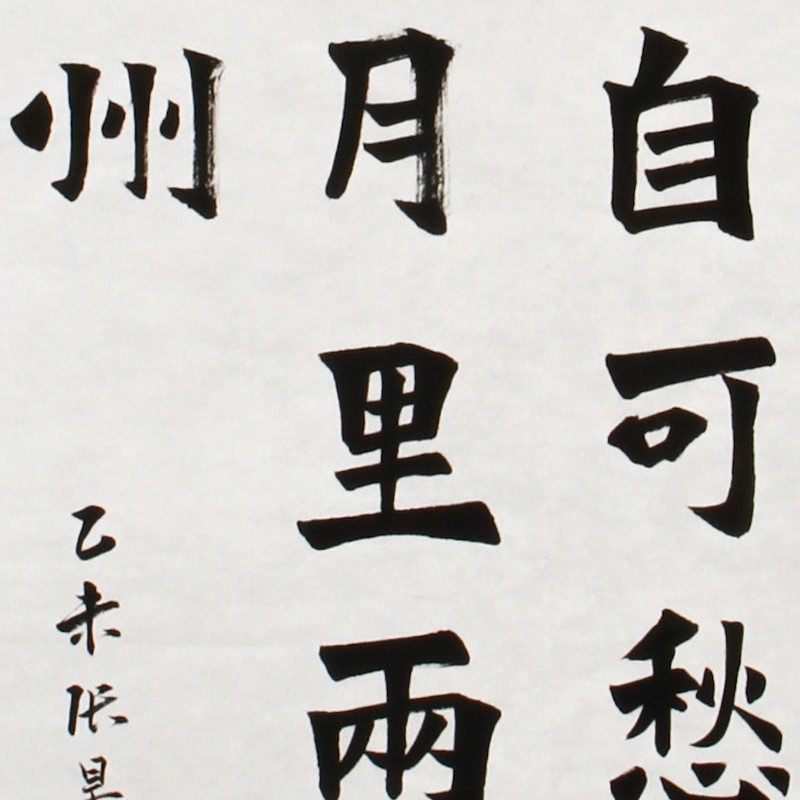 自可愁
月里兩
州
乙未張旱